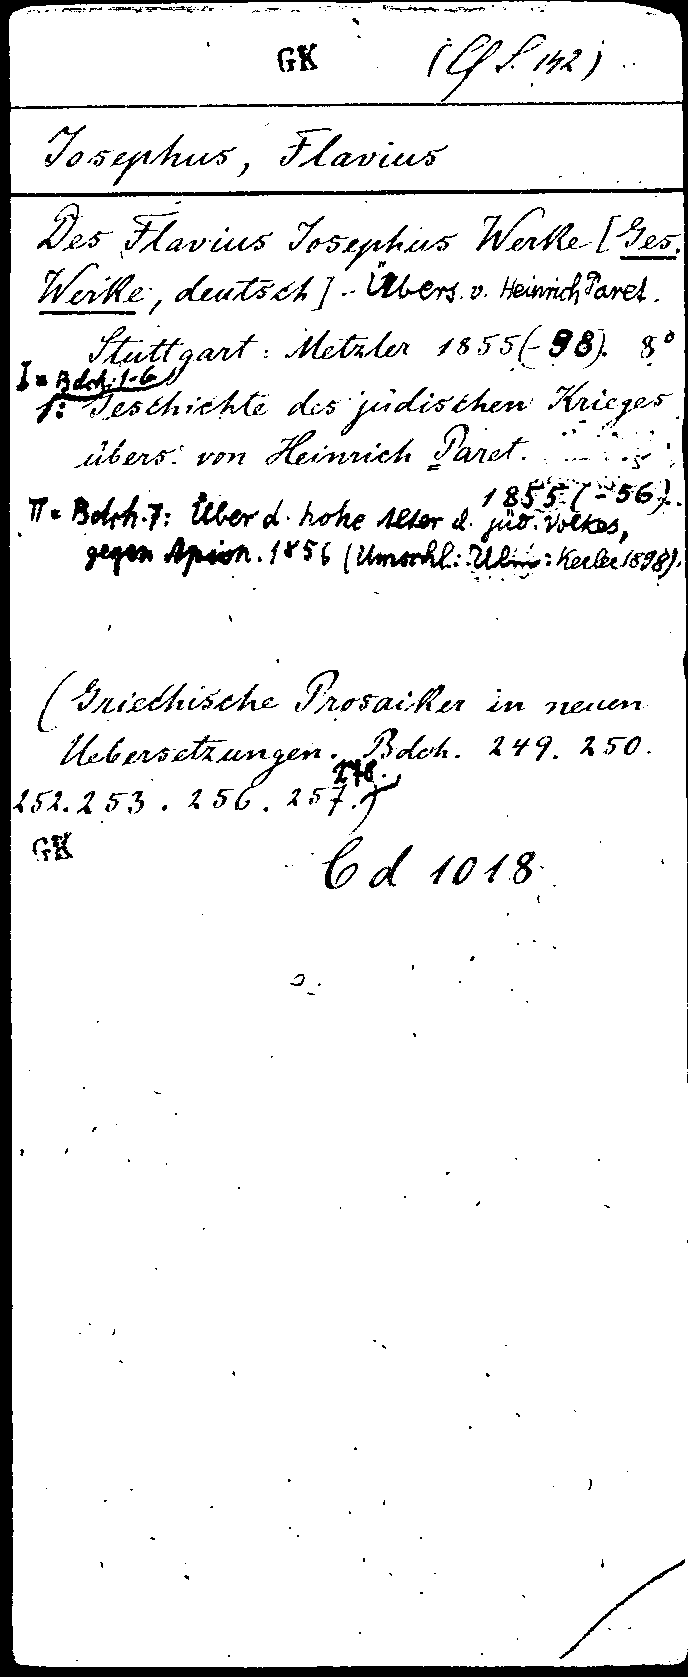 GK (Cf S. 142)
Josephus, Flavius
Des Flavius Josephus Werke [Ges.
Werke, deutsch] - Übers. v. Heinrich Paret.
Stuttgart: Metzler 1855(-98). 8°
I = Bdch. 1-6
1: Geschichte des jüdischen Krieges
übers. von Heinrich Paret.
1855(-56).
II = Bdch. 7: Über d. hohe Alter d. jüd. Volkes,
gegen Apion. 1856 (Umschl.: Ulm: Kerler 1898).
(Griechische Prosaiker in neuen
Uebersetzungen. Bdch. 249. 250.
252. 253. 256. 257. 278.)
GK
Cd 1018